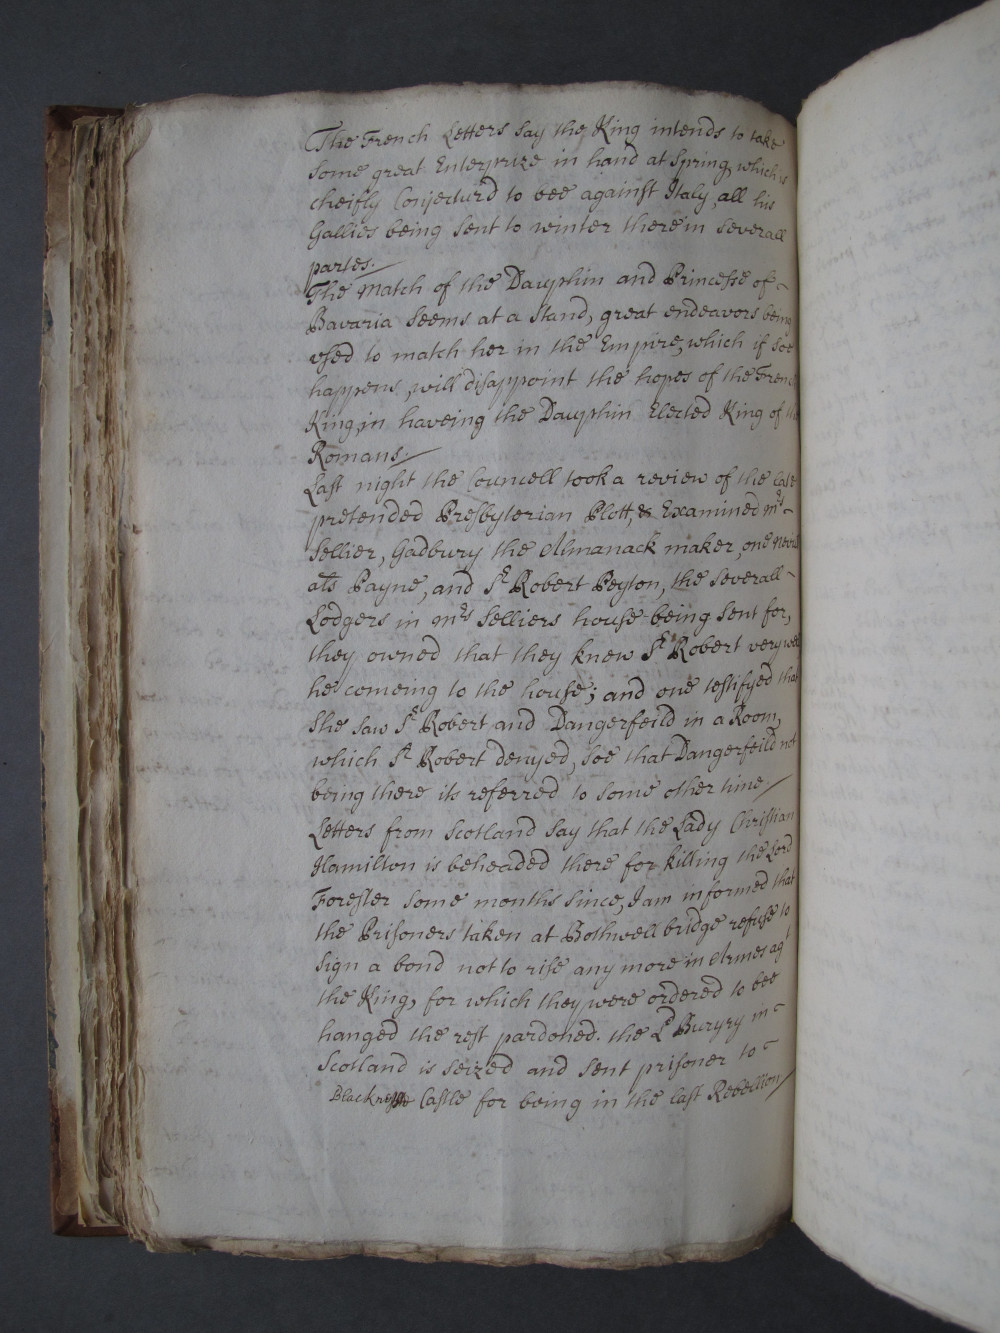 The French Letters say the King intends to take
some great Enterprize in hand at Spring, which is
cheifly Conjecturd to bee against Italy, all his
Gallies being sent to winter there in severall
partes.
The Match of the Dauphin and Princesse of
Bavaria seems at a stand, great endeavors being
used to match her in the Empire, which if soe
happens, will disappoint the hopes of the French
King, in haveing the Dauphin Elected King of the
Romans.
Last night the Councell took a review of the late
pretended Presbyterian Plott, & Examined mrs
Sellier, Gadbury the Almanack maker, one Nevill
als Payne, and Sr Robert Peyton, the severall
Lodgers in mrs Selliers house being sent for,
they owned that they knew Sr Robert very well
he comeing to the house; and one testifyed that
she saw Sr Robert and Dangerfeild in a Room,
which Sr Robert denyed, soe that Dangerfeild not
being there its referred to some other time
Letters from Scotland say that the Lady Christian
Hamilton is beheaded there for killing the Lord
Forester some months since, I am informed that
the Prisoners taken at Bothwell bridge refuse to
sign a bond not to rise any more in Armes agt
the King, for which they were ordered to bee
hanged the rest pardoned. the Ld Buryry in
Scotland is seized and sent prisoner to
Blackness Castle for being in the last Rebellion